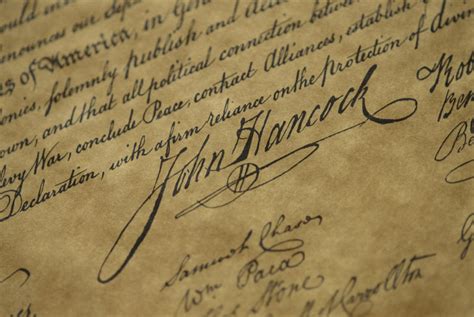 ould in
nounces our
es of America, in Gen
onies, solemnly publish and de
and that all political connection between
own, and that
evy War, conclude Peace, contract Alliances, establish
Declaration, with a firm reliance on the protection of divi
John Hancock
Rob
Ben
Be
Samuel Chase
Wm Paca
Stone